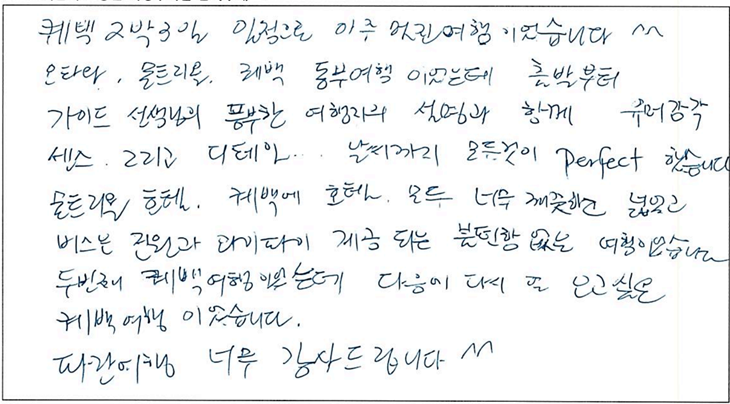 퀘벡 2박3일 일정으로 아주 멋진여행 이었습니다 ^^
오타와, 몰트리올, 퀘백 동부여행 이었는데 출발부터
가이드 선생님의 풍부한 여행지의 설명과 함께 유머감각
센스. 그리고 디테일... 날씨까지 모든것이 perfect 했습니다
몰트리올 호텔, 퀘백에 호텔. 모두 너무 깨끗하고 넓었고
버스는 전원과 와이파이 제공 되는 불편함 없는 여행이었습니다
두번째 퀘백여행이었는데 다음에 다시 또 오고싶은
퀘백여행 이었습니다.
파란여행 너무 감사드립니다 ^^